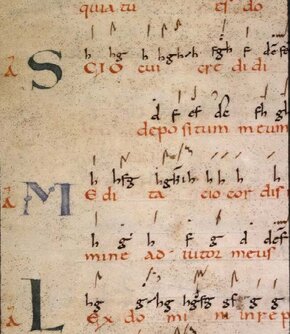 quia tu es do
h hg h hghih fgh f
SCIO cui cre di di
d f ef de fh gh
deposi tum meum
h hfg h h
MEdi ta cio cor dis
h g h f g d def
mine ad iutor meus
hg g hg hgfg gf g g
LEx do mi ni inrep